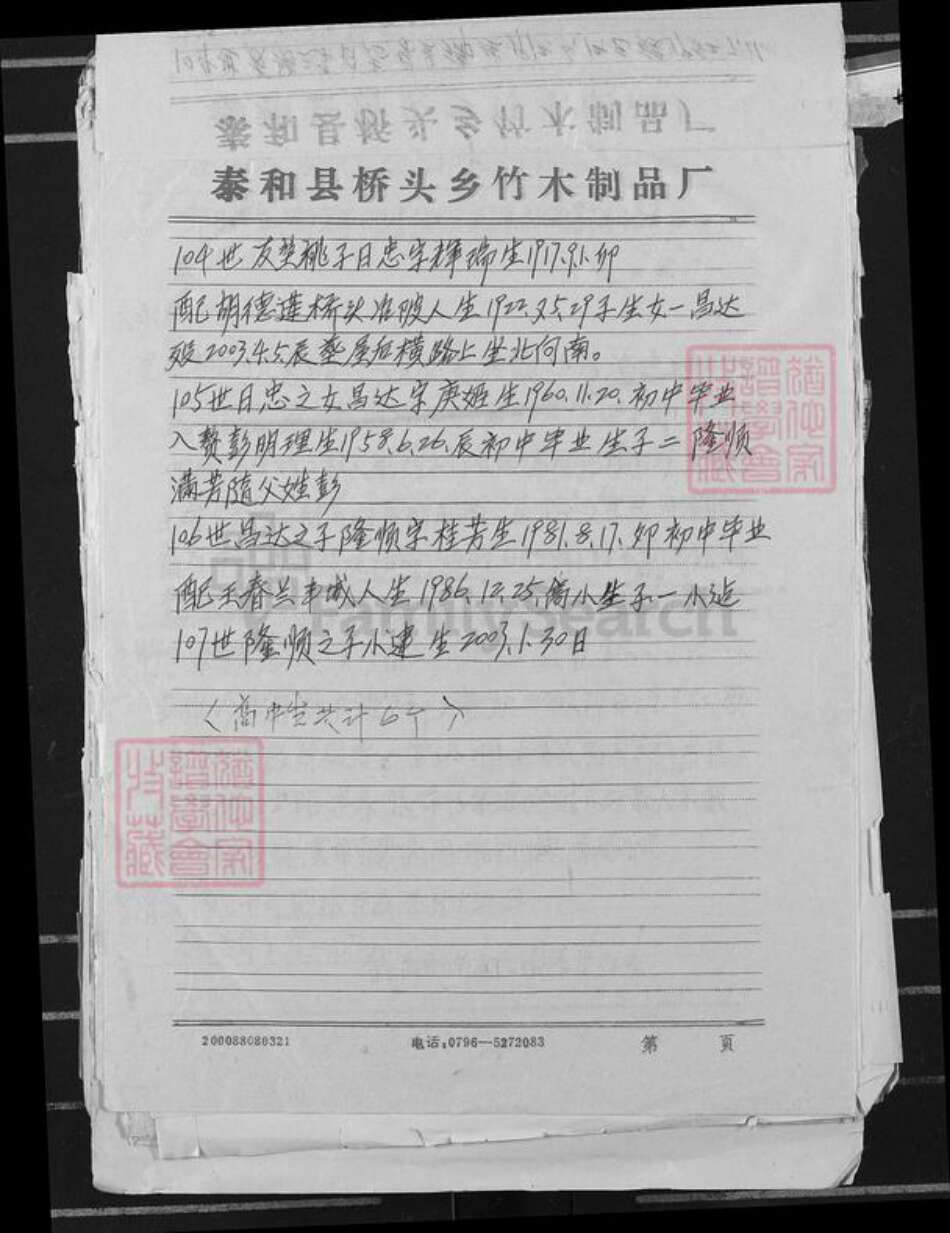 泰和县桥头乡竹木制品厂
104世友 桃子日忠字辉瑞生1917.9.1.卯
配胡德莲桥头 陂人生1922.又5.29子生女一昌达
殁2003.4.5.辰葬屋后横路上坐北向南。
105世日忠之女昌达字庚姬生1960.11.20.初中毕业
入赘彭明理生1958.6.26.辰初中毕业生子二 隆顺
满芳随父姓彭
106世昌达之子隆顺字桂芳生1981.8.17.卯初中毕业
配王春兰丰城人生1986.12.25.高小生子一小
107世隆顺之子小建生2003.1.30日
(高中生共计6个)
FamilySearch
200088080321
电话:0796—5272083
第 页